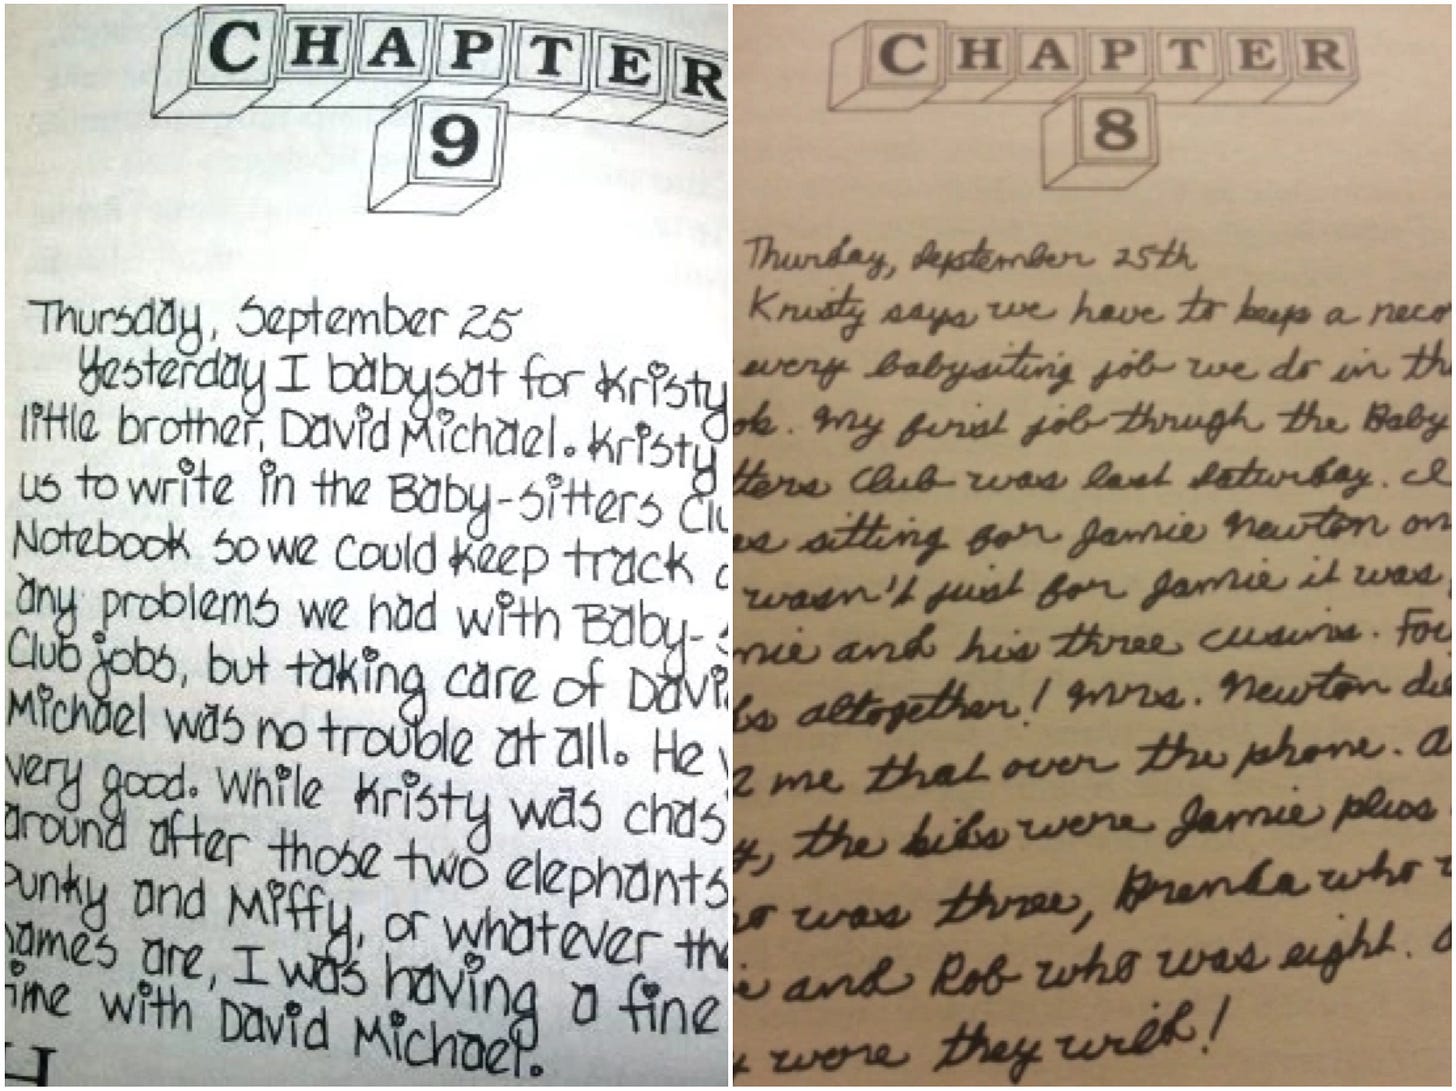 CHAPTER
9
Thursday, September 25
Yesterday I babysat for Kristy
little brother, David Michael. Kristy
us to write in the Baby-sitters Clu
Notebook so we could keep track
any problems we had with Baby-s
Club jobs, but taking care of Davi
Michael was no trouble at all. He
very good. While Kristy was chas
around after those two elephants
Punky and Miffy, or whatever the
names are, I was having a fine
ime with David Michael.
H
CHAPTER
8
Thursday, September 25th
Kristy says we have to keep a reco
every babysiting job we do in th
ok. My first job through the Baby
tters Club was last Saturday. I
as sitting for Jamie Newton on
wasn't just for Jamie it was
mie and his three cusins. Fou
bs altogether! Mrs. Newton did
me that over the phone.
y, the kibs were Jamie plus
o was three, Brenda who
e and Rob who was eight.
y were they wild!